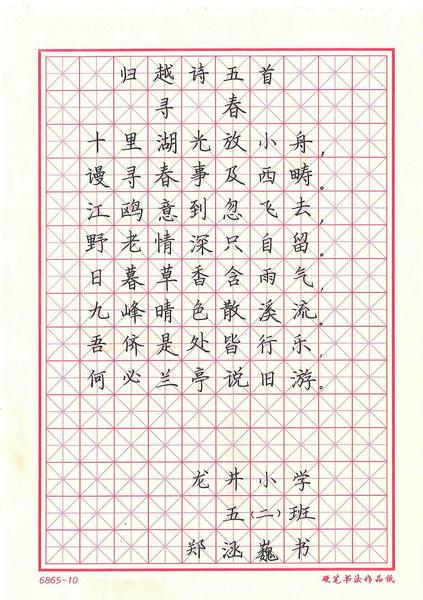 归越诗五首
寻春
十里湖光放小舟，
谩寻春事及西畴。
江鸥意到忽飞去，
野老情深只自留。
日暮草香含雨气，
九峰晴色散溪流。
吾侪是处皆行乐，
何必兰亭说旧游。
龙井小学
五（二）班
郑涵巍书
6865-10 硬笔书法作品纸